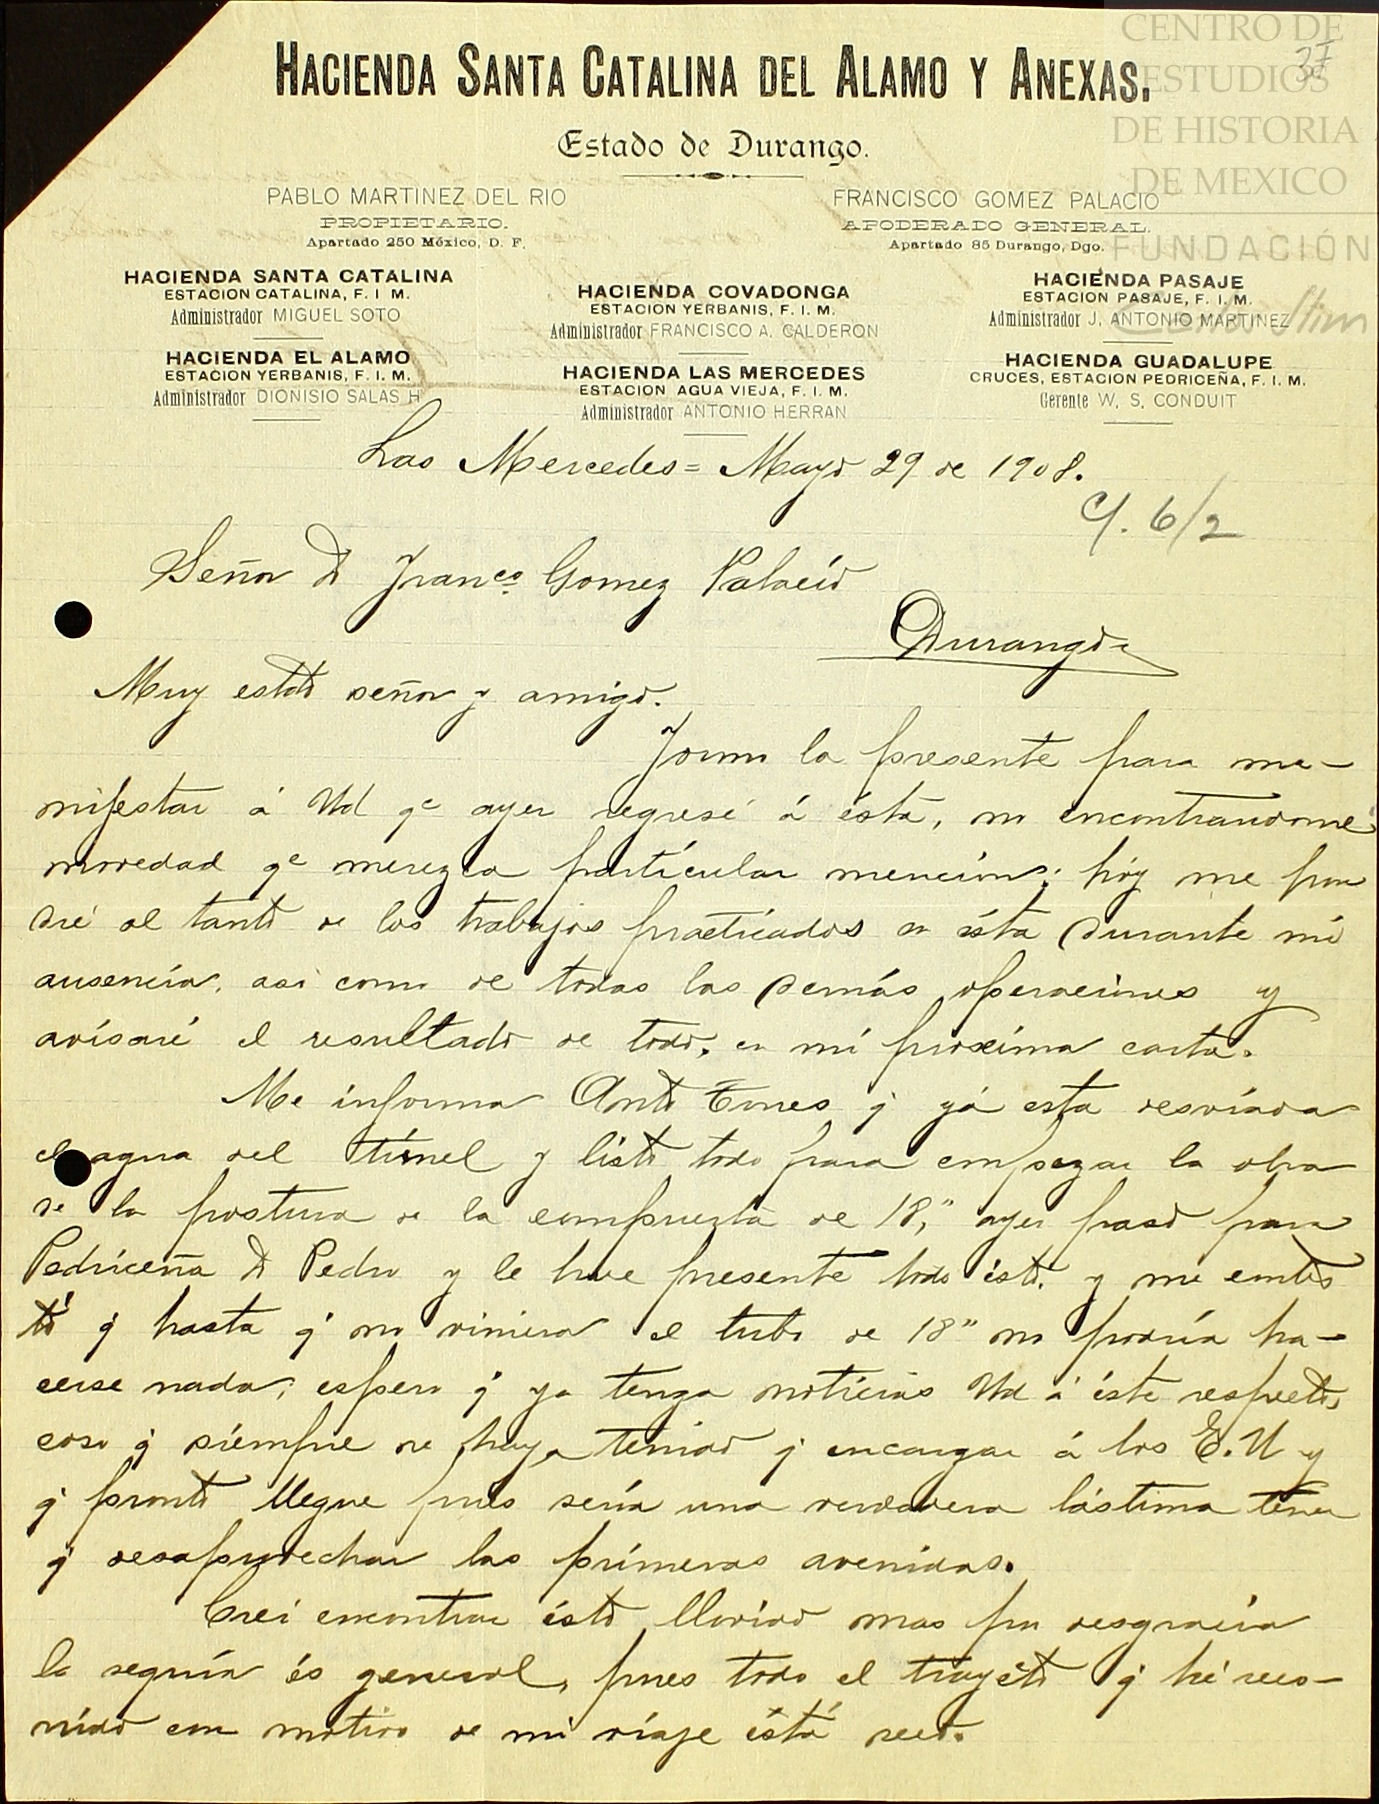 HACIENDA SANTA CATALINA DEL ALAMO Y ANEXAS.
Estado de Durango.
CENTRO DE
ESTUDIOS
DE HISTORIA
DE MEXICO
FUNDACIÓN
Carlos Slim
37
PABLO MARTINEZ DEL RIO
PROPIETARIO.
Apartado 250 México, D. F.
FRANCISCO GOMEZ PALACIO
APODERADO GENERAL.
Apartado 85 Durango, Dgo.
HACIENDA SANTA CATALINA
ESTACION CATALINA, F. I M.
Administrador MIGUEL SOTO
HACIENDA COVADONGA
ESTACION YERBANIS, F. I. M.
Administrador FRANCISCO A. CALDERON
HACIENDA PASAJE
ESTACION PASAJE, F. I. M.
Administrador J. ANTONIO MARTINEZ
HACIENDA EL ALAMO
ESTACION YERBANIS, F. I. M.
Administrador DIONISIO SALAS H
HACIENDA LAS MERCEDES
ESTACION AGUA VIEJA, F. I. M.
Administrador ANTONIO HERRAN
HACIENDA GUADALUPE
CRUCES, ESTACION PEDRICEÑA, F. I. M.
Gerente W. S. CONDUIT
Las Mercedes = Mayo 29 de 1908.
C/. 6/2
Señor D Franco. Gomez Palacio
Durango
Muy estdo señor y amigo.
Tomo la presente para ma-
nifestar á Ud qe ayer regresé á ésta, no encontrandome
novedad qe merezca particular mencion; hoy me pon
dré al tanto de los trabajos practicados en ésta durante mi
ausencia, asi como de todas las demás operaciones y
avisaré el resultado de todo, en mi proxima carta.
Me informa Anto q yá esta desviada
el agua del túnel y listo todo para empezar la obra
de la postura de la compuerta de 18," ayer pasó para
Pedriceña D Pedro y le hice presente todo ésto, y me contes
tó q hasta q no viniera el tubo de 18" no podria ha-
cerse nada; espero q ya tenga noticias Ud á éste respecto,
caso q siempre se haya tenido q encargar á los E. U y
q pronto llegue pues sería una verdadera lástima tener
q desaprovechar las primeras avenidas.
Crei encontrar ésto llovido mas por desgracia
la sequía és general, pues todo el trayécto q hé reco-
rrido con motivo de mi viaje ésta seco.